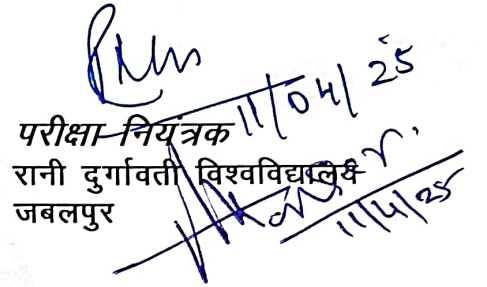 11/04/25
परीक्षा नियंत्रक
रानी दुर्गावती विश्वविद्यालय
जबलपुर
11/4/25